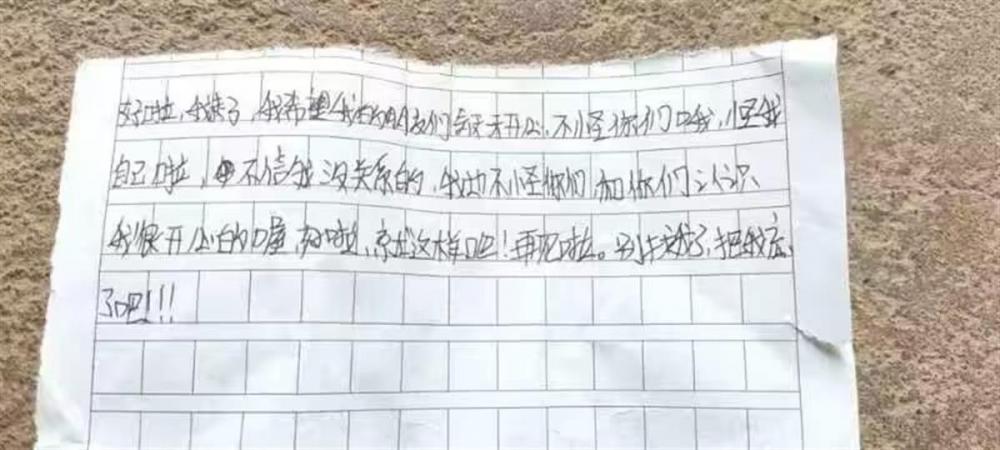 好啦，我走了，我希望我的朋友们每天开心，不怪你们，怪我
自己啦，不信我没关系的，我也不怪你们，和你们认识
我很开心的喔，好啦，就这样吧！再见啦。别找我了，把我忘
了吧!!!